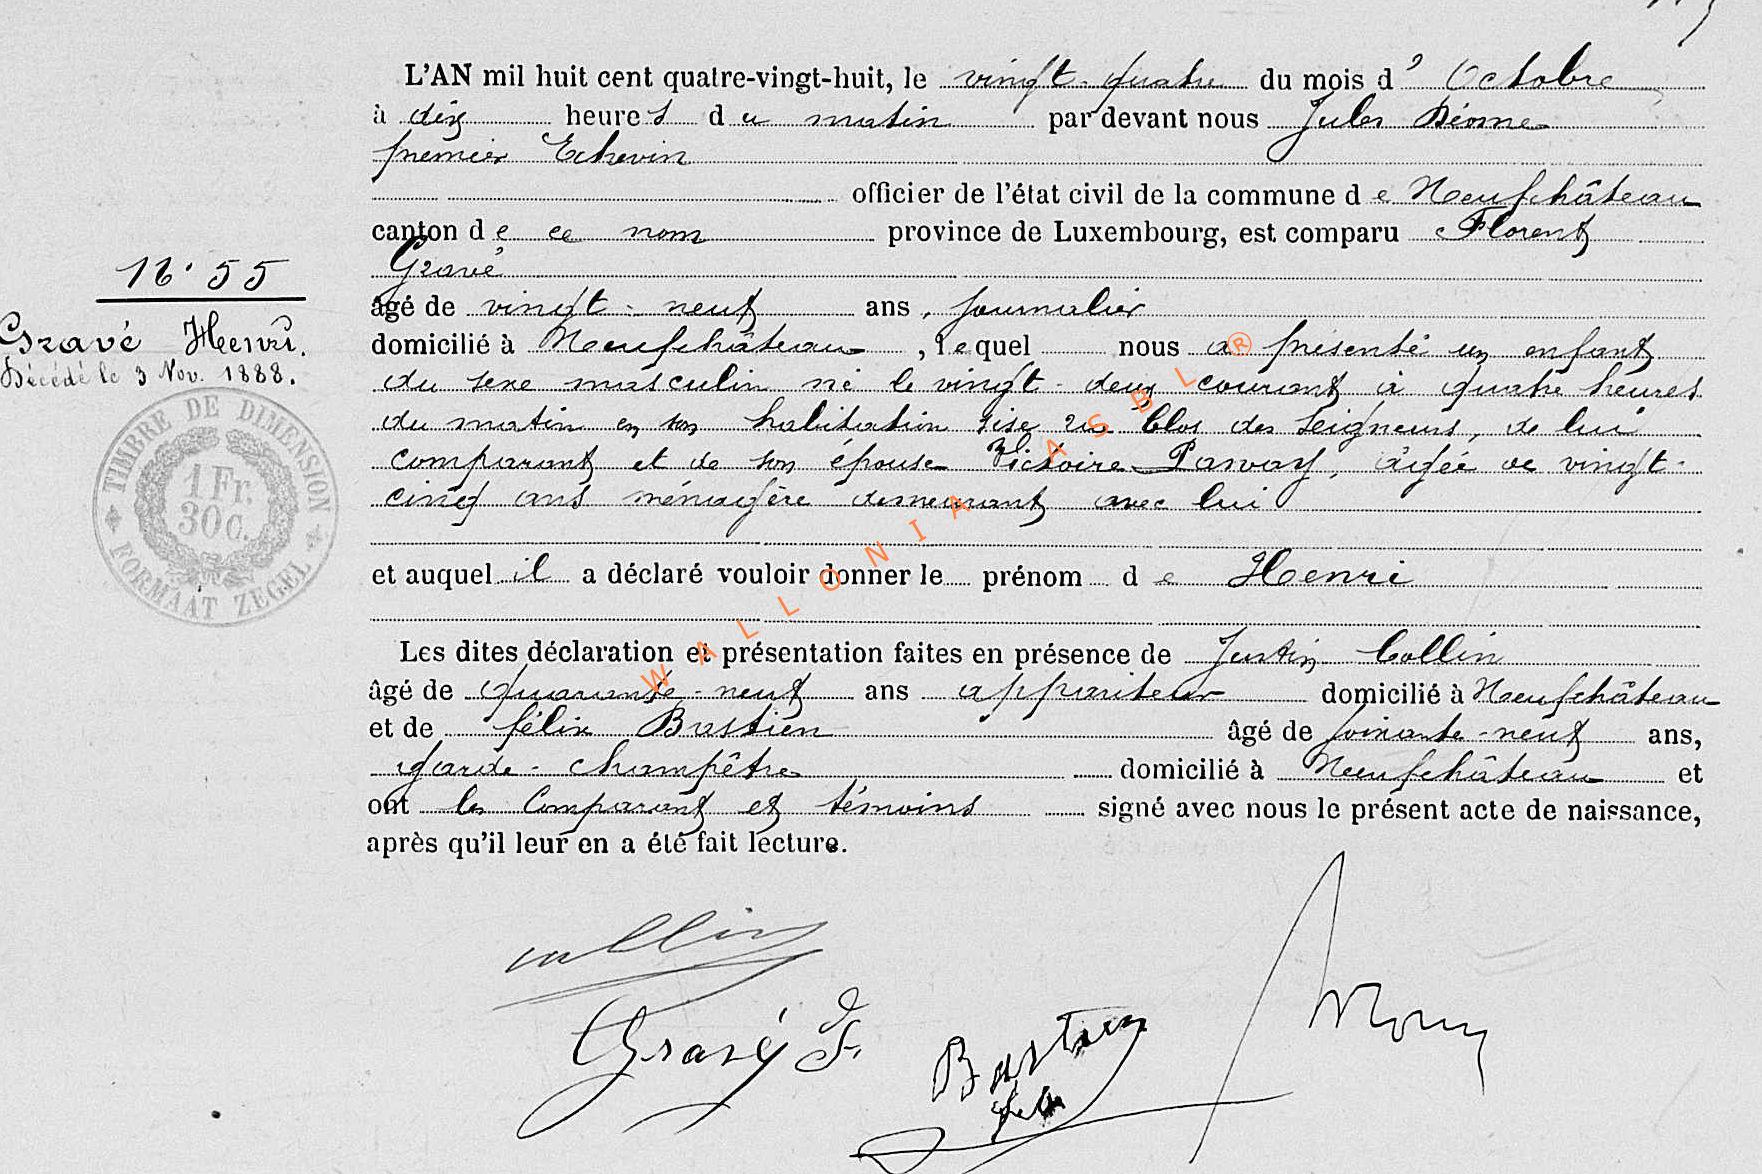 L'AN mil huit cent quatre-vingt-huit, le vingt-quatre du mois d' Octobre
à dix heures du matin par devant nous Jules
premier Echevin
officier de l'état civil de la commune de Neufchâteau
canton de ce nom province de Luxembourg, est comparu Florent
Gravé
âgé de vingt-neuf ans, journalier
domicilié à Neufchâteau, lequel nous a présenté un enfant
du sexe masculin né le vingt-deux courant à quatre heures
du matin en son habitation sise rue Clos des Seigneurs, de lui
comparant et de son épouse Victoire Parvay, âgée de vingt-
cinq ans ménagère demeurant avec lui
et auquel il a déclaré vouloir donner le prénom de Henri
Les dites déclaration et présentation faites en présence de Justin Collin
âgé de quarante-neuf ans appariteur domicilié à Neufchâteau
et de félix Bastien âgé de soixante-neuf ans,
garde-champêtre domicilié à Neufchâteau et
ont les Comparant et témoins signé avec nous le présent acte de naissance,
après qu'il leur en a été fait lecture.
Gravé Henri.
Décédé le 3 Nov. 1888.
TIMBRE DE DIMENSION
1 Fr.
30 C.
FORMAAT ZEGEL
WALLONIA ASBL ®
Collin
Gravé F.
Bastien